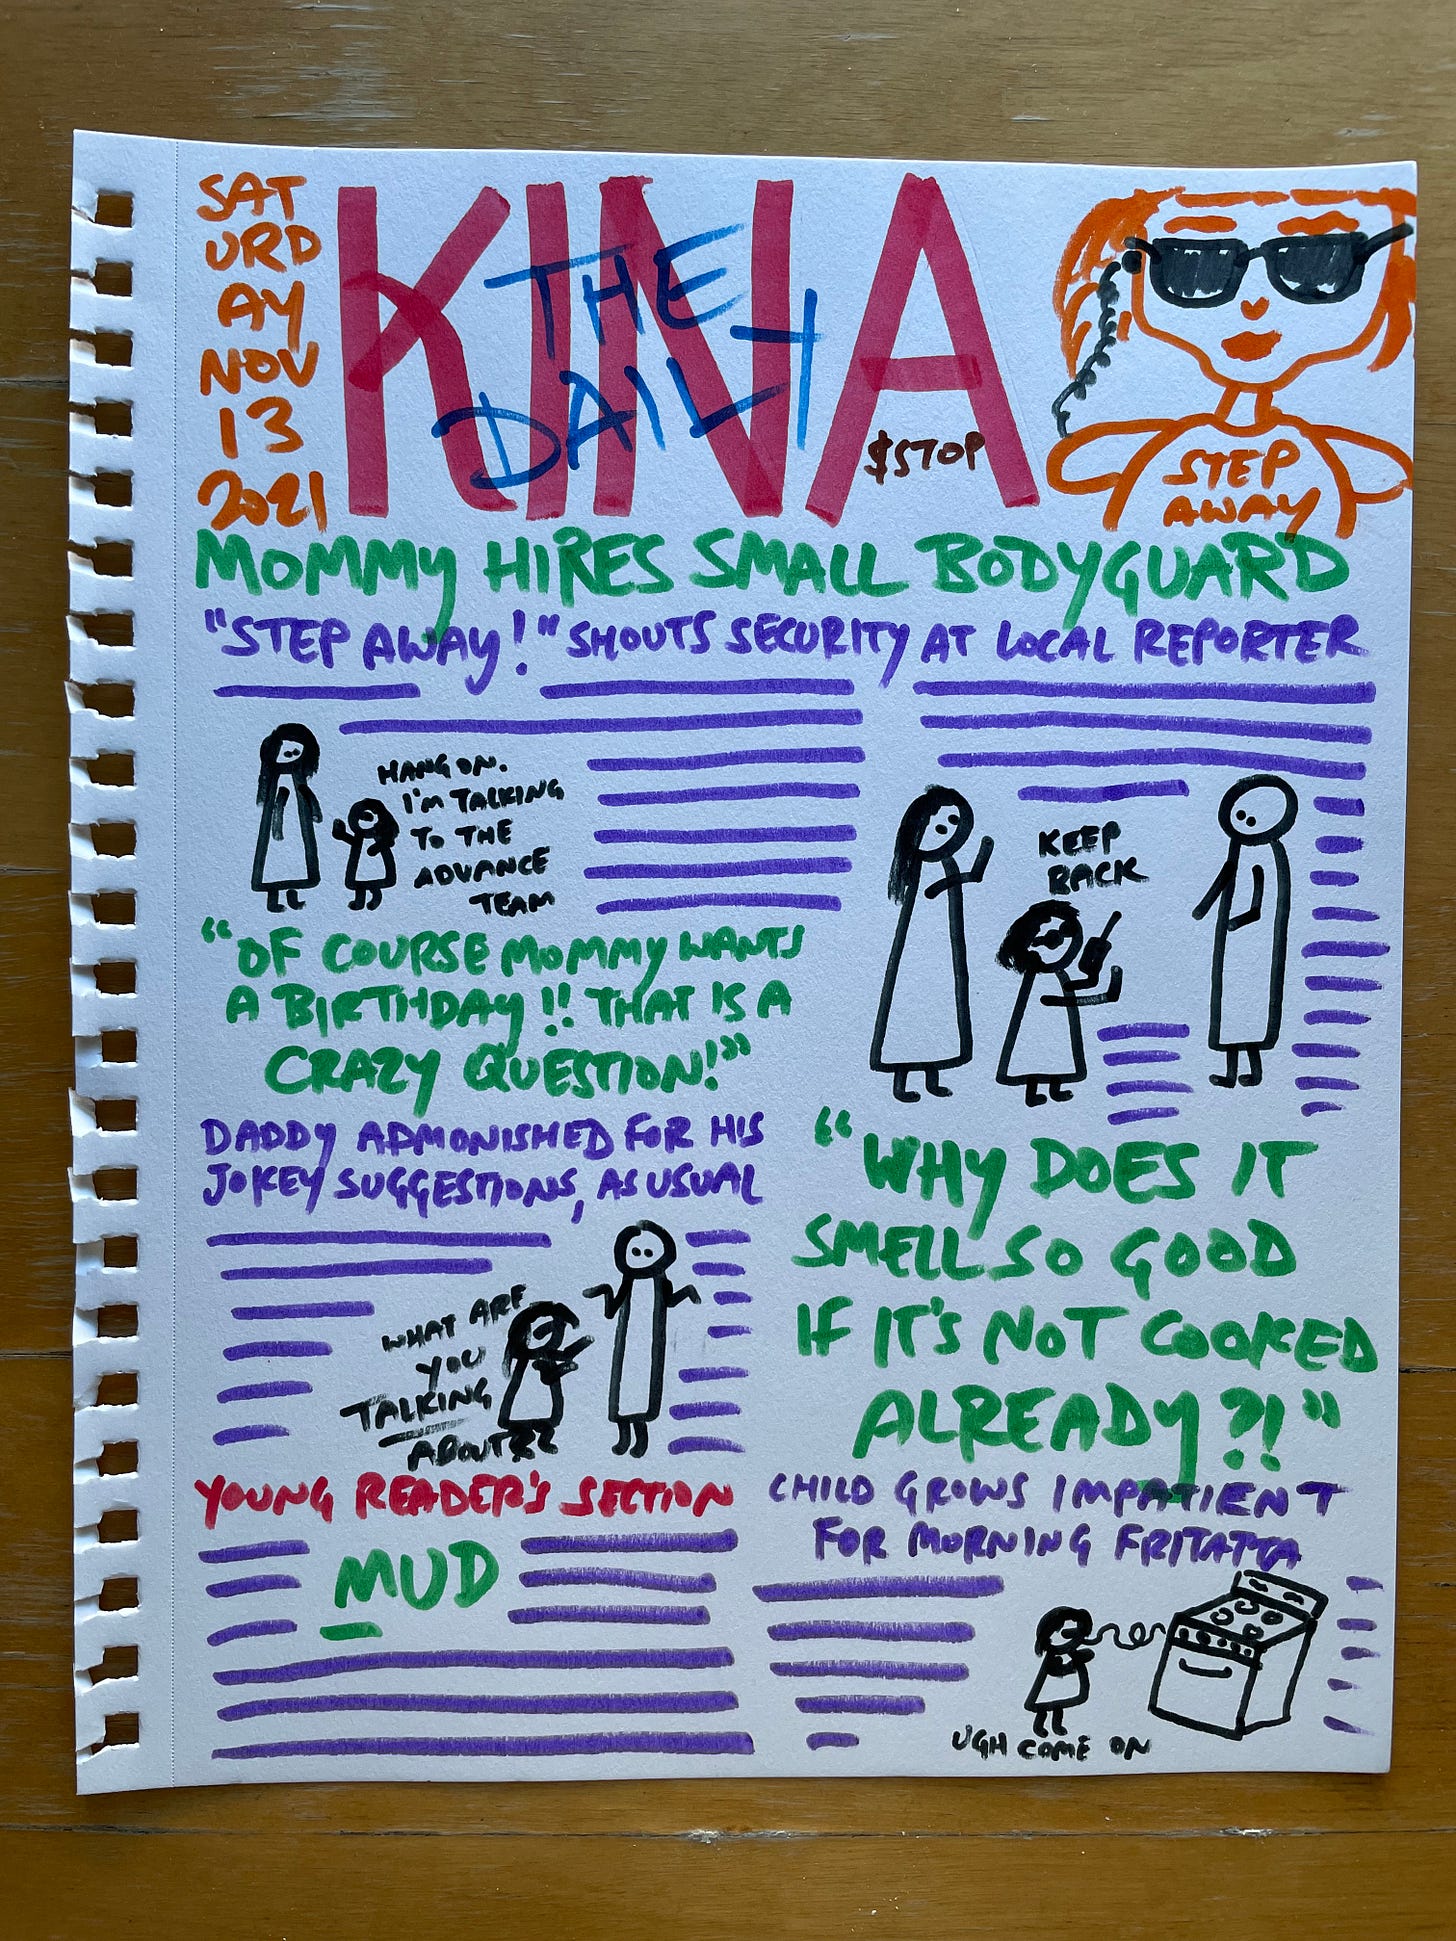 SAT
URD
AY
NOV
13
2021
KINA
THE
DAILY
$STOP
STEP
AWAY
MOMMY HIRES SMALL BODYGUARD
"STEP AWAY!" SHOUTS SECURITY AT LOCAL REPORTER
HANG ON.
I'M TALKING
TO THE
ADVANCE
TEAM
KEEP
BACK
"OF COURSE MOMMY WANTS
A BIRTHDAY!! THAT IS A
CRAZY QUESTION!"
DADDY ADMONISHED FOR HIS
JOKEY SUGGESTIONS, AS USUAL
WHAT ARE
YOU
TALKING
ABOUT
"WHY DOES IT
SMELL SO GOOD
IF IT'S NOT COOKED
ALREADY?!"
CHILD GROWS IMPATIENT
FOR MORNING FRITATTA
UGH COME ON
YOUNG READER'S SECTION
MUD